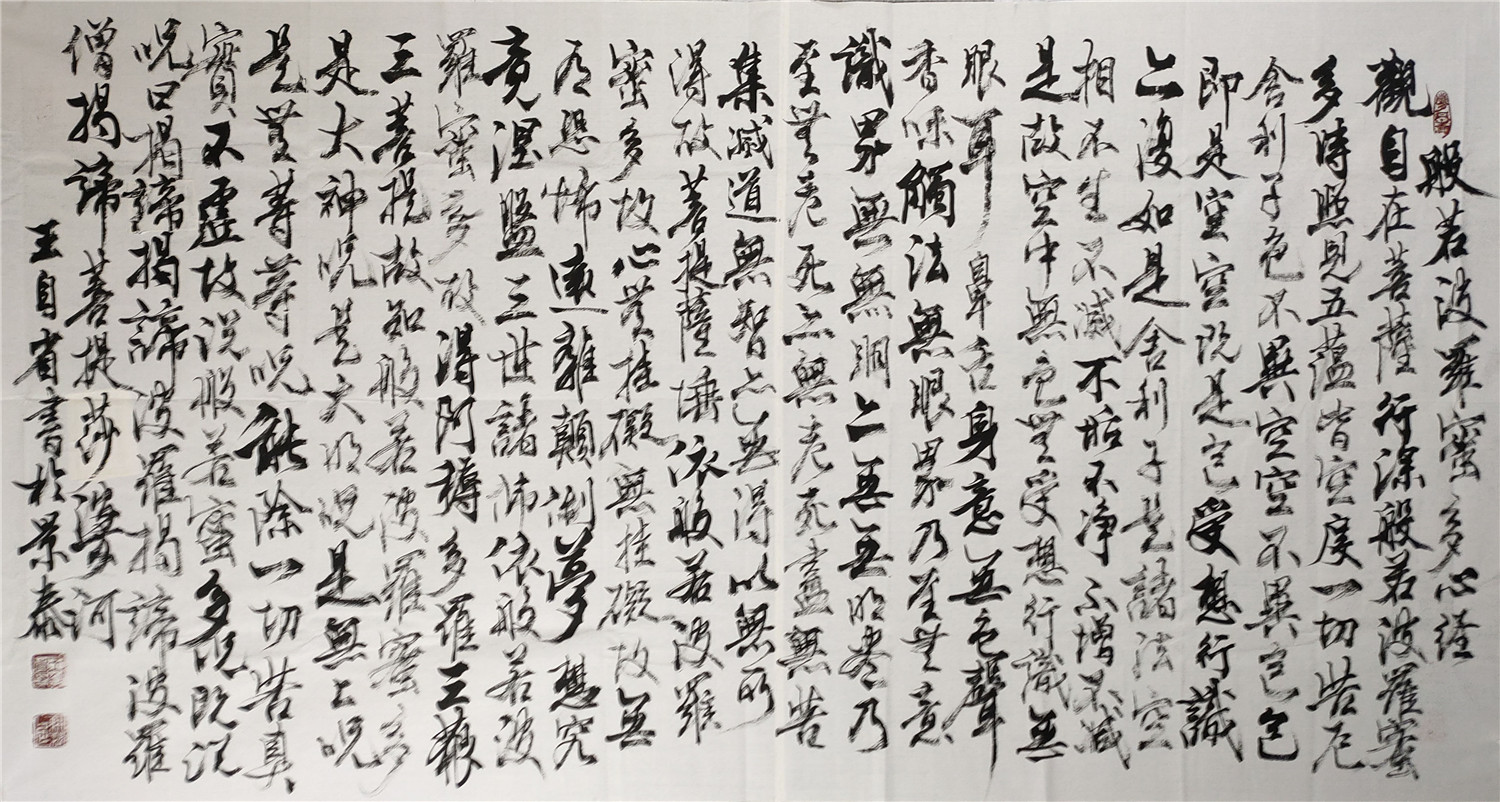 般若波羅蜜多心経
觀自在菩薩行深般若波羅蜜
多時照見五蘊皆空度一切苦厄
舍利子色不異空空不異色色
即是空空既是色受想行識
亦復如是舍利子是諸法空
相不生不滅不垢不淨不增不減
是故空中無色無受想行識無
眼耳鼻舌身意無色聲
香味觸法無眼界乃至無意
識界無無明亦無無明盡乃
至無老死亦無老死盡無苦
集滅道無智亦無得以無所
得故菩提薩埵依般若波羅
蜜多故心無挂礙無挂礙故無
有恐怖遠離顛倒夢想究
竟涅盤三世諸佛依般若波
羅蜜多故得阿耨多羅三藐
三菩提故知般若波羅蜜多
是大神呪是大明呪是無上呪
是無等等呪能除一切苦真
實不虛故説般若蜜多呪既説
呪曰揭諦揭諦波羅揭諦波羅
僧揭諦菩提莎婆訶
王自省書於景泰